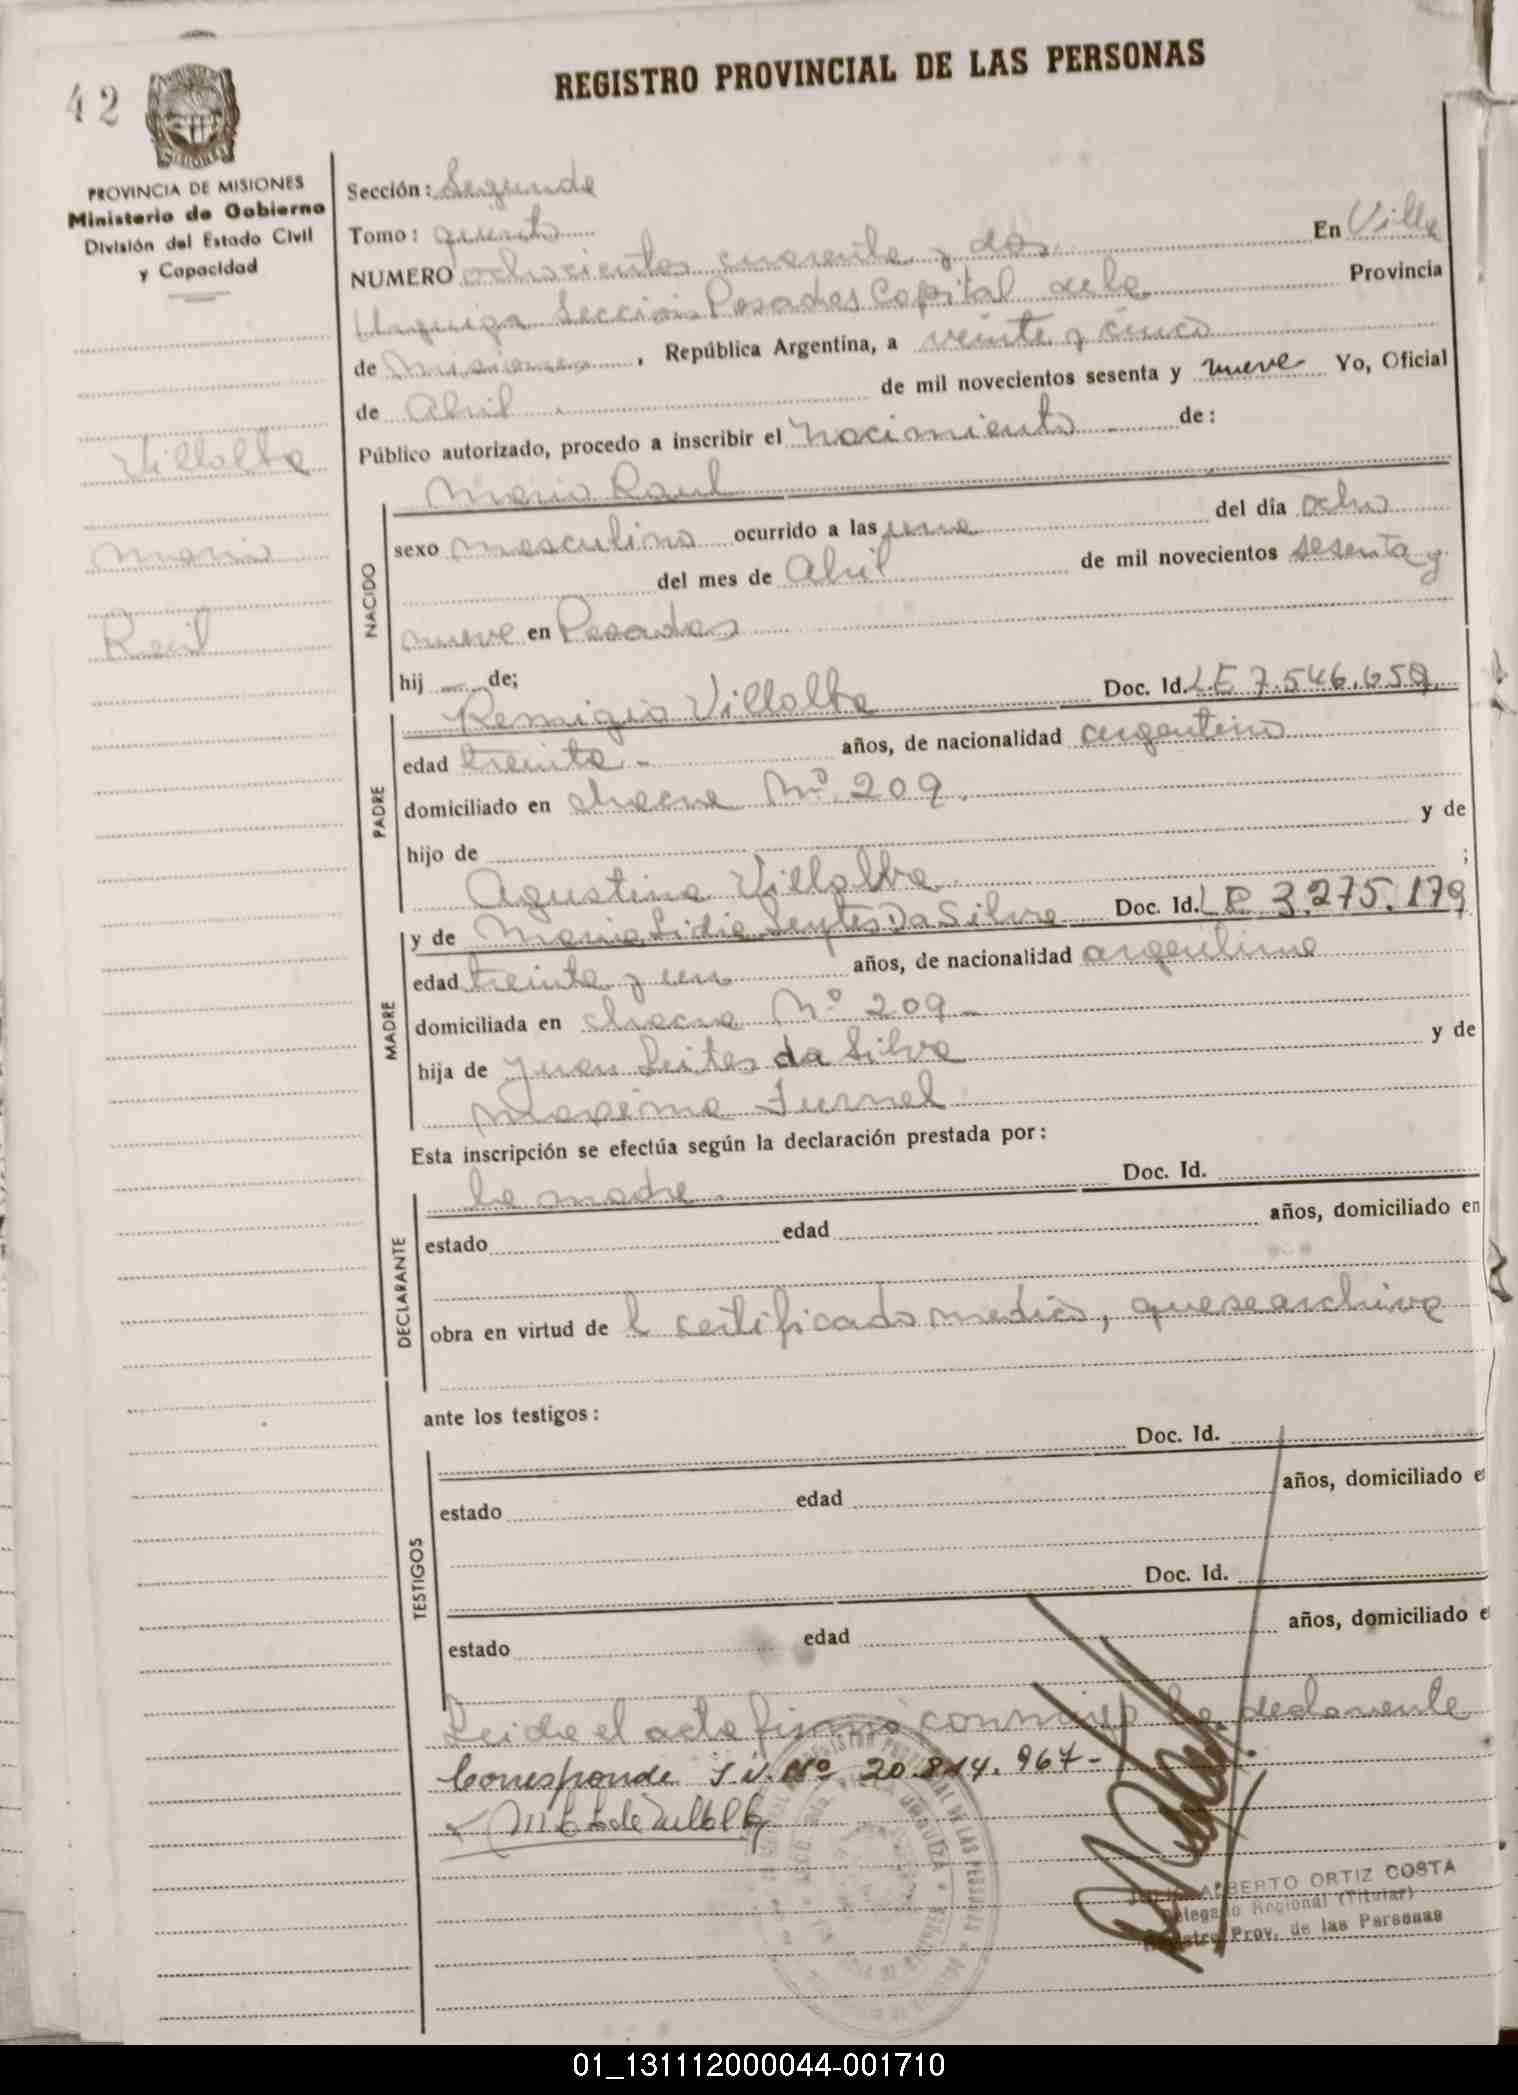 42
REGISTRO PROVINCIAL DE LAS PERSONAS
PROVINCIA DE MISIONES
Ministerio de Gobierno
División del Estado Civil
y Capacidad
Villalba
Mario
Raúl
Sección: Segunda
Tomo: quinto
NUMERO ochocientos cuarenta y dos En Villa
Urquiza Sección Posadas Capital de la Provincia
de Misiones, República Argentina, a veinte y cinco
de Abril de mil novecientos sesenta y nueve Yo, Oficial
Público autorizado, procedo a inscribir el nacimiento de:
NACIDO
Mario Raul
sexo masculino ocurrido a las una del día ocho
del mes de Abril de mil novecientos sesenta y
nueve en Posadas
hij de;
PADRE
Remigio Villalba Doc. Id. LE 7.546.659
edad treinta - años, de nacionalidad argentino
domiciliado en chacra Nº 209.
hijo de y de
Agustina Villalba ;
MADRE
y de Maria Lidia Leytes Da Silva Doc. Id. LC 3.275.179
edad treinta y un años, de nacionalidad argentina
domiciliada en chacra Nº 209 -
hija de Juan Leites da Silva y de
Maxima Furnel
Esta inscripción se efectúa según la declaración prestada por:
DECLARANTE
la madre Doc. Id.
estado edad años, domiciliado en
obra en virtud de l certificado medico, que se archiva
ante los testigos:
TESTIGOS
Doc. Id.
estado edad años, domiciliado e
Doc. Id.
estado edad años, domiciliado e
Leida el acta firma conmigo la declarante
Corresponde I.N. Nº 20.814.967-
M L L de Villalba
ALBERTO ORTIZ COSTA
Delegado Regional (Titular)
Registro Prov. de las Personas
01_131112000044-001710